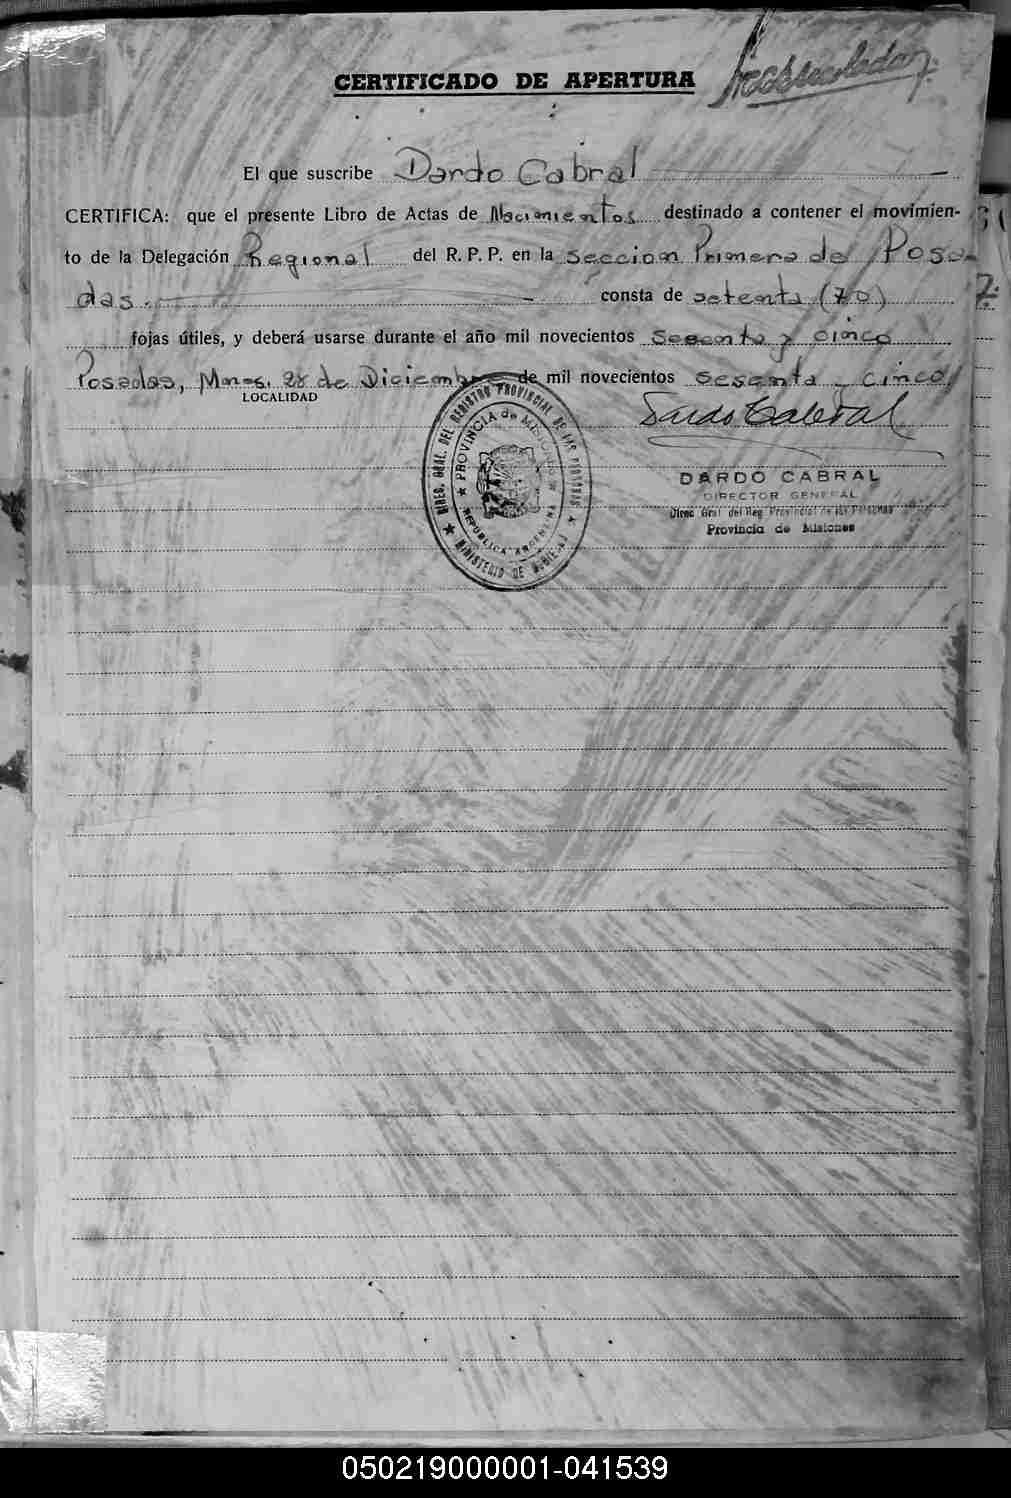 CERTIFICADO DE APERTURA
El que suscribe Dardo Cabral
CERTIFICA: que el presente Libro de Actas de Nacimientos destinado a contener el movimien-
to de la Delegación Regional del R. P. P. en la Sección Primera de Posa-
das.- consta de setenta (70)
fojas útiles, y deberá usarse durante el año mil novecientos sesenta y cinco
Posadas, Mnes. 28 de Diciembre de mil novecientos sesenta y cinco
LOCALIDAD
Dardo Cabral
DARDO CABRAL
DIRECTOR GENERAL
Direc Gral del Reg Provincial de las Personas
Provincia de Misiones
DIREC. GRAL. DEL REGISTRO PROVINCIAL DE LAS PERSONAS
★ MINISTERIO DE GOBIERNO ★
★ PROVINCIA de MISIONES ★
REPÚBLICA ARGENTINA
050219000001-041539